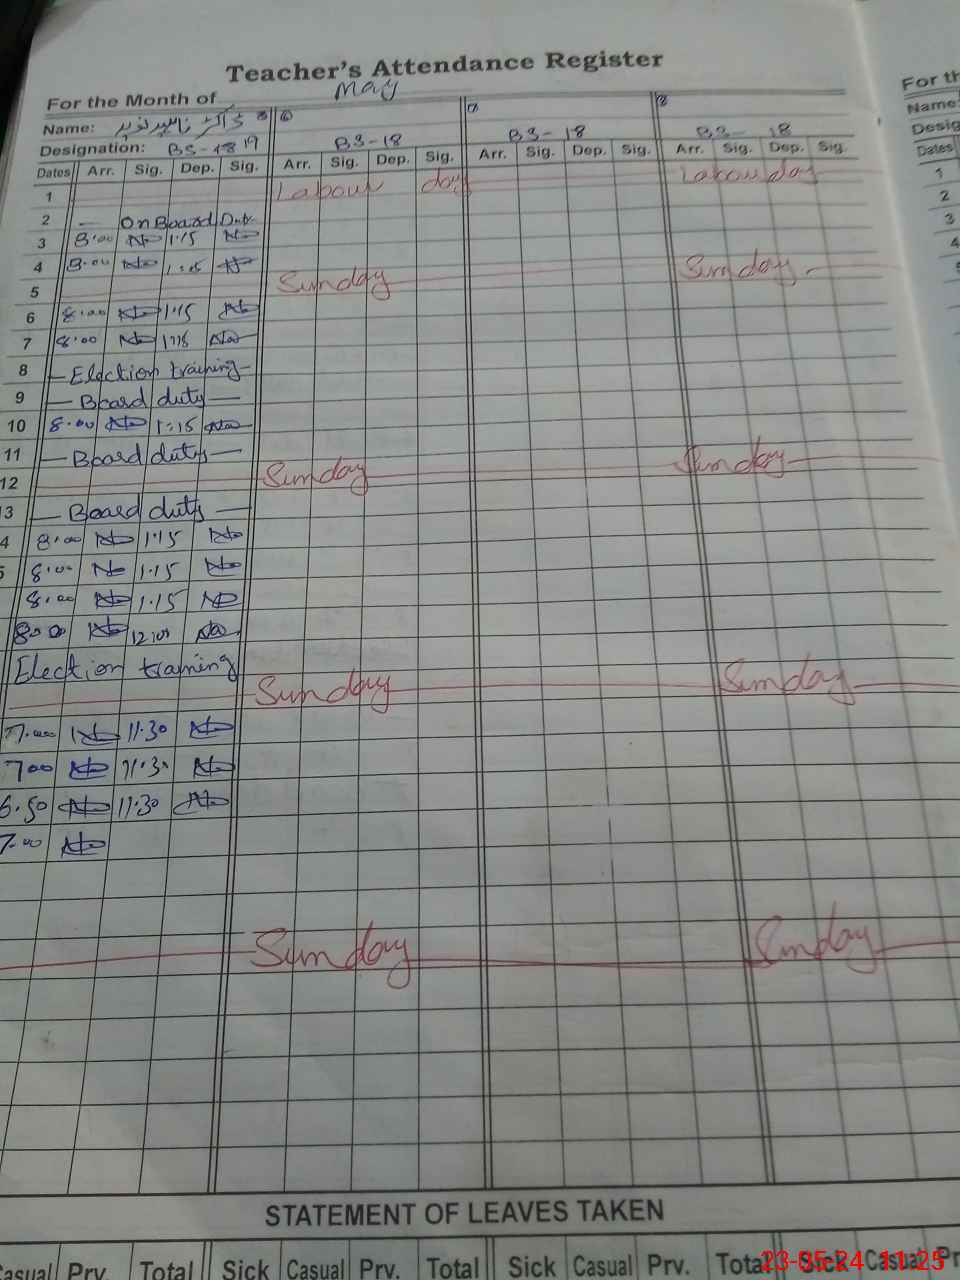 Teacher's Attendance Register
For the Month of May
For th
Name: ڈاکٹر 5 6 7 8
Name
Designation: BS-18 19 BS-18 BS-18 BS-18
Desig
Dates Arr. Sig. Dep. Sig. Arr. Sig. Dep. Sig. Arr. Sig. Dep. Sig. Arr. Sig. Dep. Sig.
Dates
1 Labour day Labour day
1
2 — On Board Duty
2
3 8:00 1:15
3
4 8:00 1:15
4
5 Sunday Sunday
6 8:00 1:15
7 8:00 1:15
8 Election training
9 Board duty
10 8:00 1:15
11 Board duty
12 Sunday Sunday
13 Board duty
4 8:00 1:15
5 8:00 1:15
8:00 1.15
8:00 12:00
Election training
Sunday Sunday
7:00 11:30
7:00 11:30
6:50 11:30
7:00
Sunday Sunday
STATEMENT OF LEAVES TAKEN
Casual Prv. Total Sick Casual Prv. Total Sick Casual Prv. Total Sick Casual Pr
23-05-24 11:25